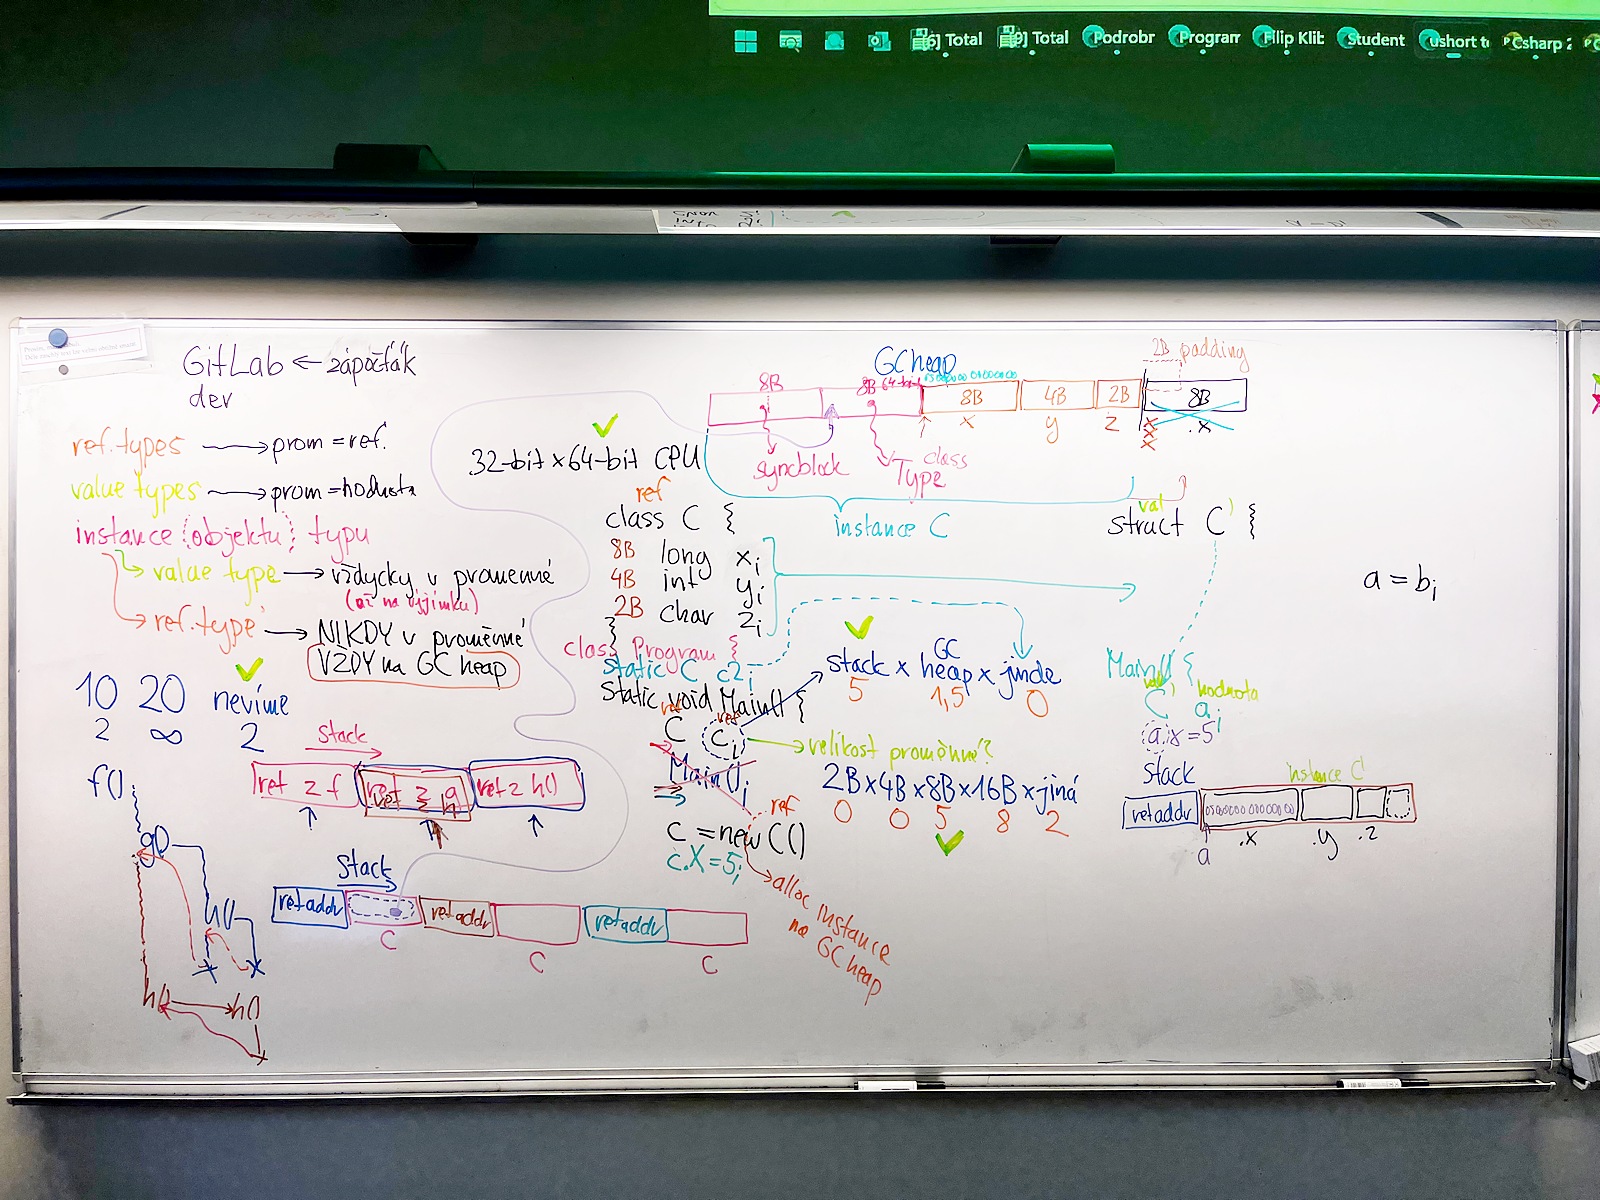 6] Total
9] Total
Podrobr
Progran
Filip Klit
Student
ushort to
Csharp 2
GitLab ← zápočťák
dev
ref. types → prom = ref.
value types → prom = hodnota
instance (objektu) typu
value type → vždycky v proměnné
(až na výjimku)
ref. type → NIKDY v proměnné
VŽDY na GC heap
10 20 nevíme
2 ∞ 2
Stack
ret z f
ret z h()
f()
g()
h()
h() h()
Stack
retaddr
retaddr
retaddr
C
C
C
32-bit x 64-bit CPU
ref
class C {
8B long x;
4B int y;
2B char z;
}
class Program {
static C c2;
static void Main() {
ref
C c;
ref
Main();
ref
c = new C()
c.X = 5;
alloc instance
na GC heap
GC heap
8B
8B 64-bit
8B
4B
2B
2B padding
8B
x
y
z
.x
syncblock
class
Type
instance C
GC
stack x heap x jinde
5 1,5 0
velikost proměnné?
2B x 4B x 8B x 16B x jiná
0 0 5 8 2
val
struct C' {
Main() {
C' a;
hodnota
a.x = 5
stack
instance C'
retaddr
a
.x
.y
.z
a = b;